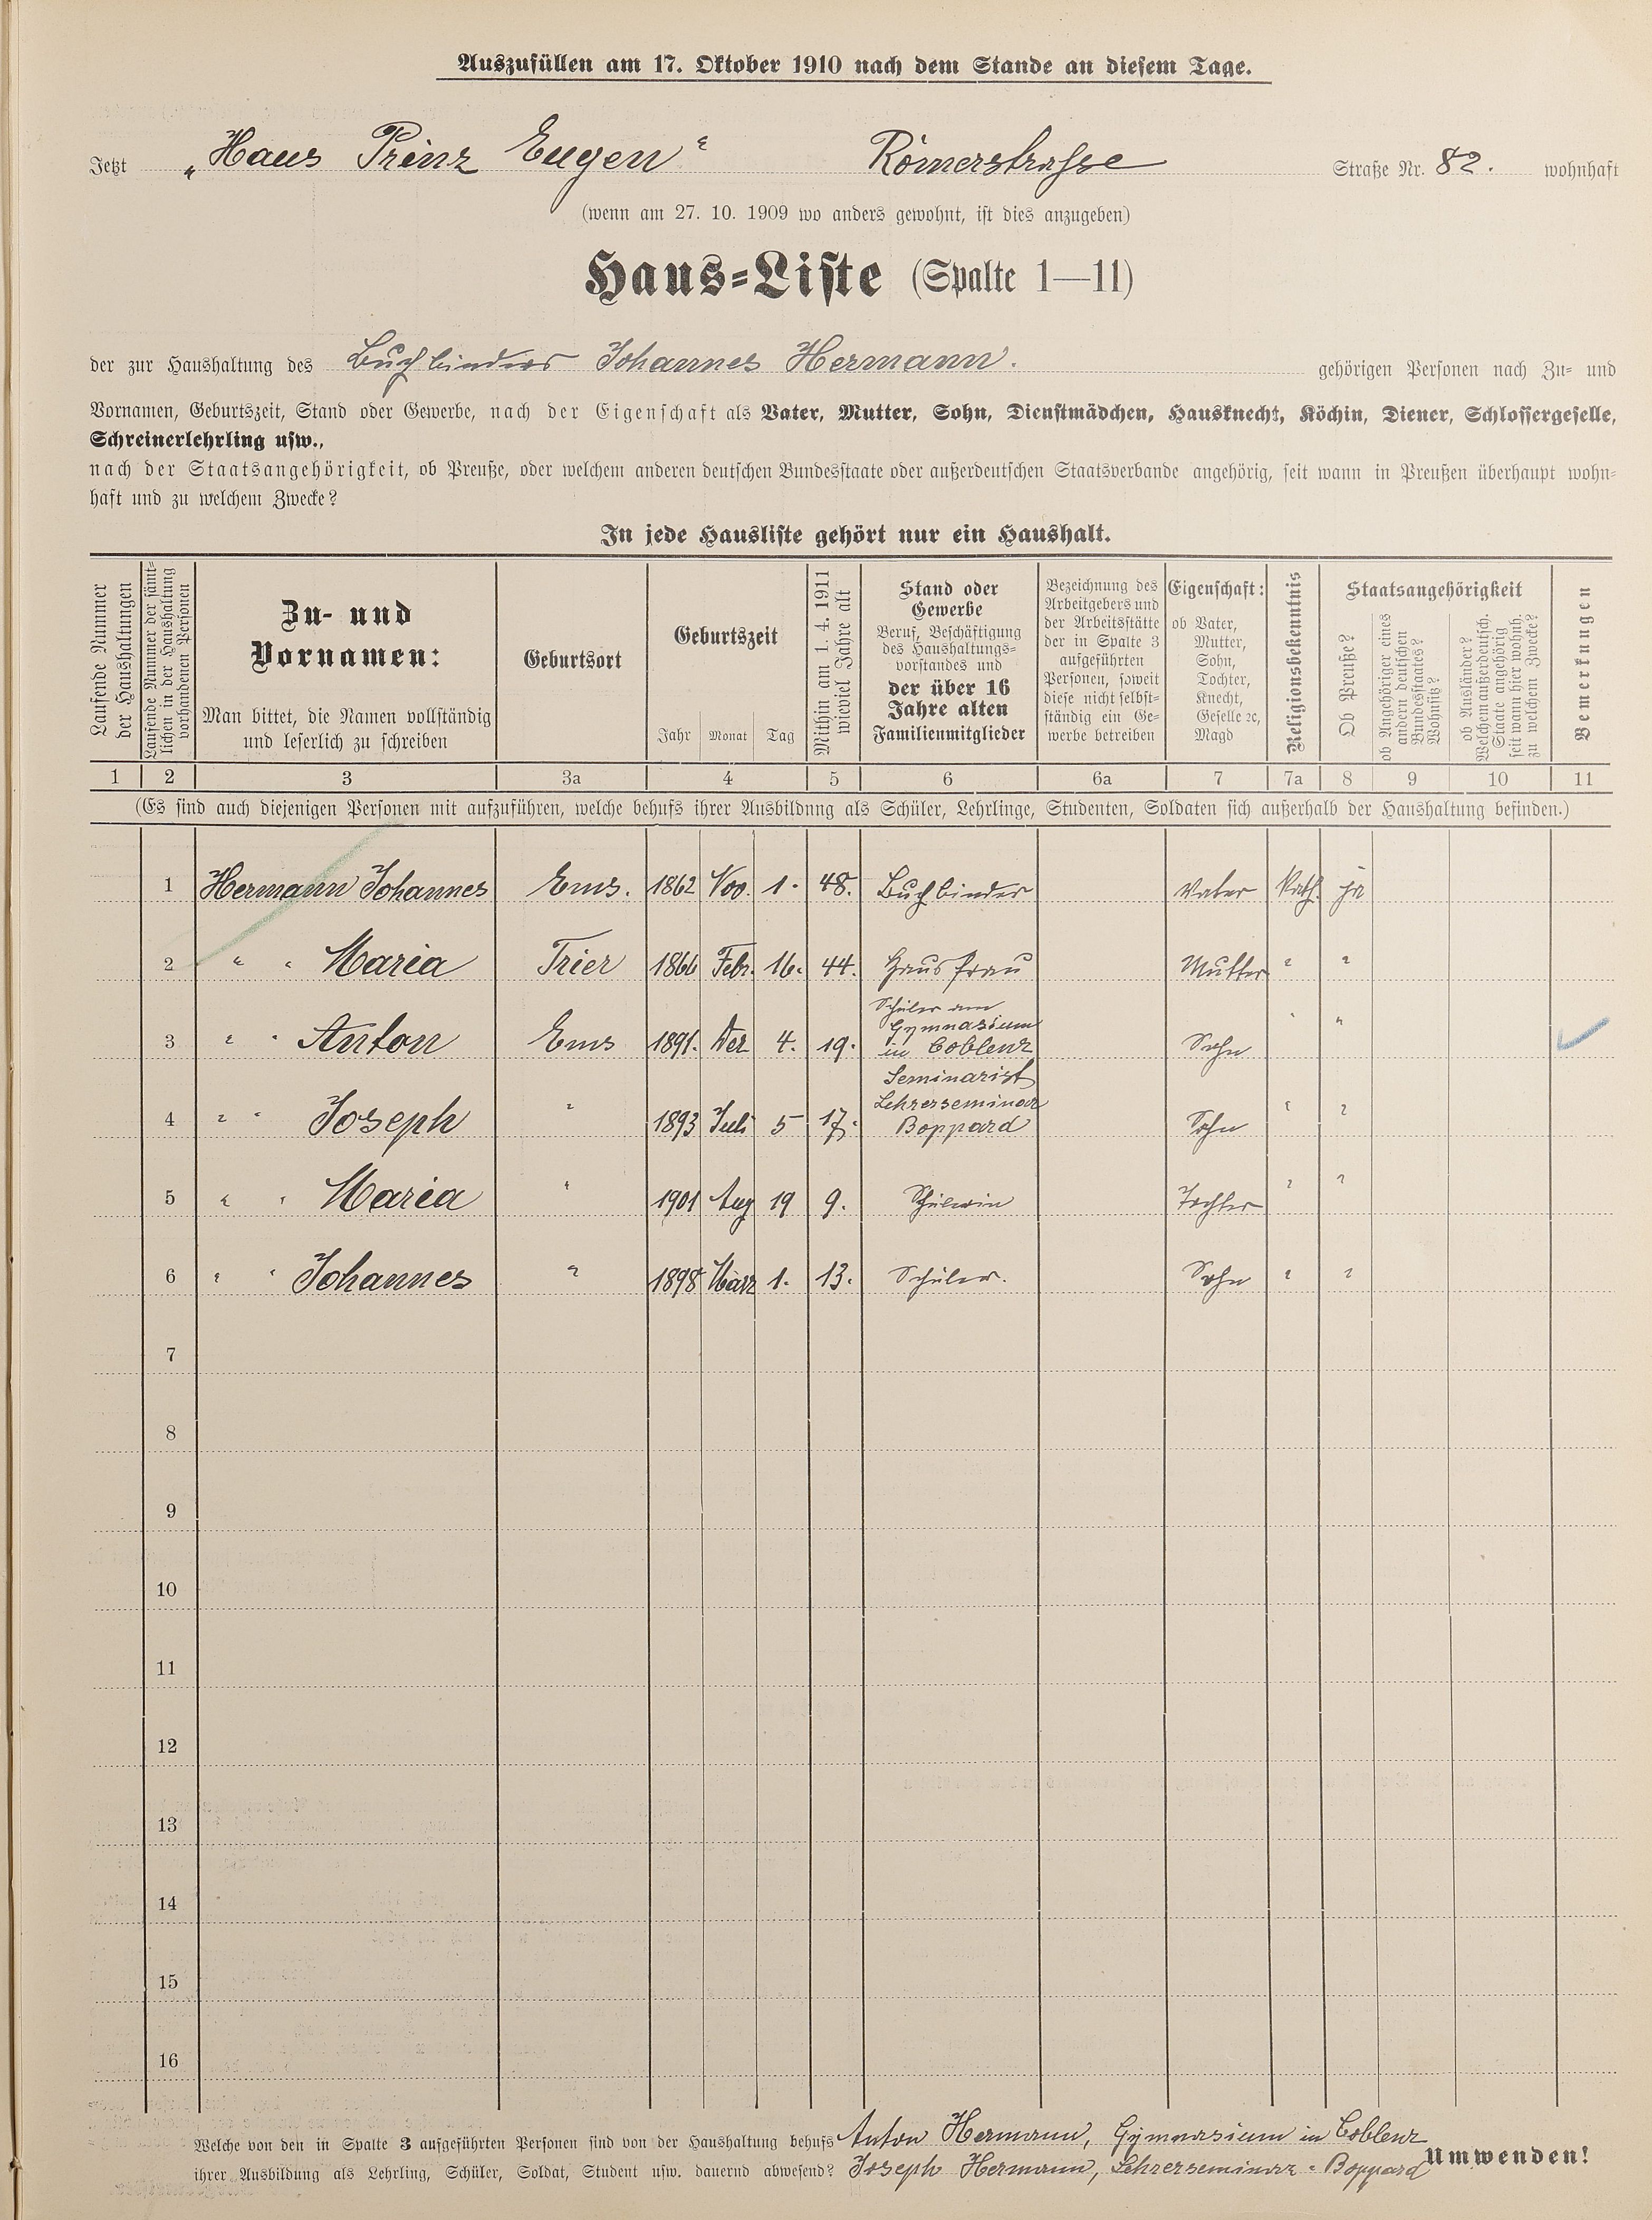 Auszufüllen am 17. Oktober 1910 nach dem Stande an diesem Tage.
Jetzt „Haus Prinz Eugen“ Römerstrasse Straße Nr. 82. wohnhaft
(wenn am 27. 10. 1909 wo anders gewohnt, ist dies anzugeben)
Haus-Liste (Spalte 1—11)
der zur Haushaltung des Buchbinders Johannes Hermann. gehörigen Personen nach Zu- und
Vornamen, Geburtszeit, Stand oder Gewerbe, nach der Eigenschaft als Vater, Mutter, Sohn, Dienstmädchen, Hausknecht, Köchin, Diener, Schlossergeselle,
Schreinerlehrling usw.,
nach der Staatsangehörigkeit, ob Preuße, oder welchem anderen deutschen Bundesstaate oder außerdeutschen Staatsverbande angehörig, seit wann in Preußen überhaupt wohn-
haft und zu welchem Zwecke?
In jede Hausliste gehört nur ein Haushalt.
Laufende Nummer
der Haushaltungen
Laufende Nummer der sämt-
lichen in der Haushaltung
vorhandenen Personen
Zu- und
Vornamen:
Man bittet, die Namen vollständig
und leserlich zu schreiben
Geburtsort
Geburtszeit
Jahr Monat Tag
Mithin am 1. 4. 1911
wieviel Jahre alt
Stand oder
Gewerbe
Beruf, Beschäftigung
des Haushaltungs-
vorstandes und
der über 16
Jahre alten
Familienmitglieder
Bezeichnung des
Arbeitgebers und
der Arbeitsstätte
der in Spalte 3
aufgeführten
Personen, soweit
diese nicht selbst-
ständig ein Ge-
werbe betreiben
Eigenschaft:
ob Vater,
Mutter,
Sohn,
Tochter,
Knecht,
Geselle ꝛc,
Magd
Religionsbekenntnis
Staatsangehörigkeit
Ob Preuße?
ob Angehöriger eines
andern deutschen
Bundesstaates?
Wohnsitz?
ob Ausländer?
Welchem außerdeutsch.
Staate angehörig
seit wann hier wohnh.
zu welchem Zwecke?
Bemerkungen
1 2 3 3a 4 5 6 6a 7 7a 8 9 10 11
(Es sind auch diejenigen Personen mit aufzuführen, welche behufs ihrer Ausbildung als Schüler, Lehrlinge, Studenten, Soldaten sich außerhalb der Haushaltung befinden.)
1 Hermann Johannes Ems. 1862 Nov. 1. 48. Buchbinder Vater kath. ja
2 " " Maria Trier 1866 Febr. 16. 44. Hausfrau Mutter " "
3 " " Anton Ems 1891. Dez 4. 19. Schüler am Gymnasium in Coblenz Sohn " "
4 " " Joseph " 1893 Juli 5 17. Seminarist Lehrerseminar Boppard Sohn " "
5 " " Maria " 1901 Aug 19 9. Schülerin Tochter " "
6 " " Johannes " 1898 März 1. 13. Schüler. Sohn " "
7
8
9
10
11
12
13
14
15
16
Welche von den in Spalte 3 aufgeführten Personen sind von der Haushaltung behufs Anton Hermann, Gymnasium in Coblenz
ihrer Ausbildung als Lehrling, Schüler, Soldat, Student usw. dauernd abwesend? Joseph Hermann, Lehrerseminar - Boppard
Umwenden!